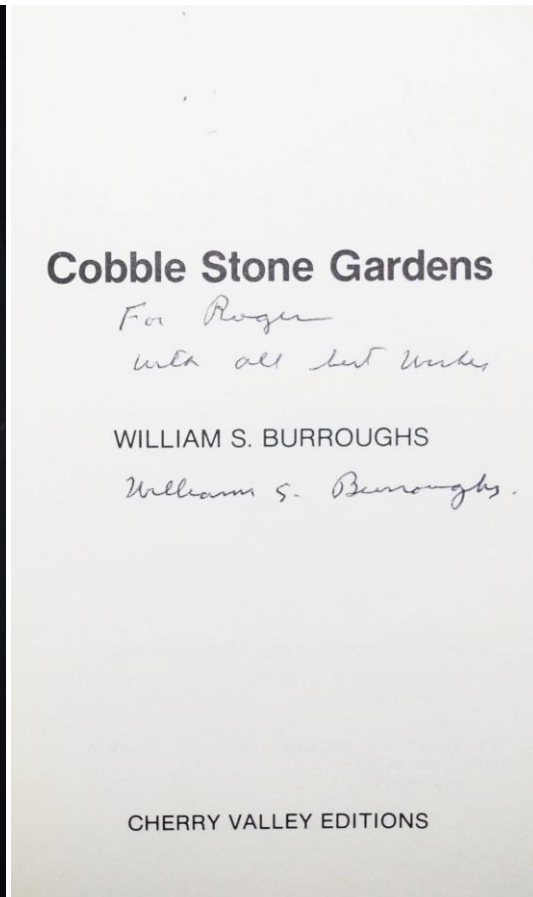 Cobble Stone Gardens
For Roger
with all best wishes
WILLIAM S. BURROUGHS
William S. Burroughs.
CHERRY VALLEY EDITIONS